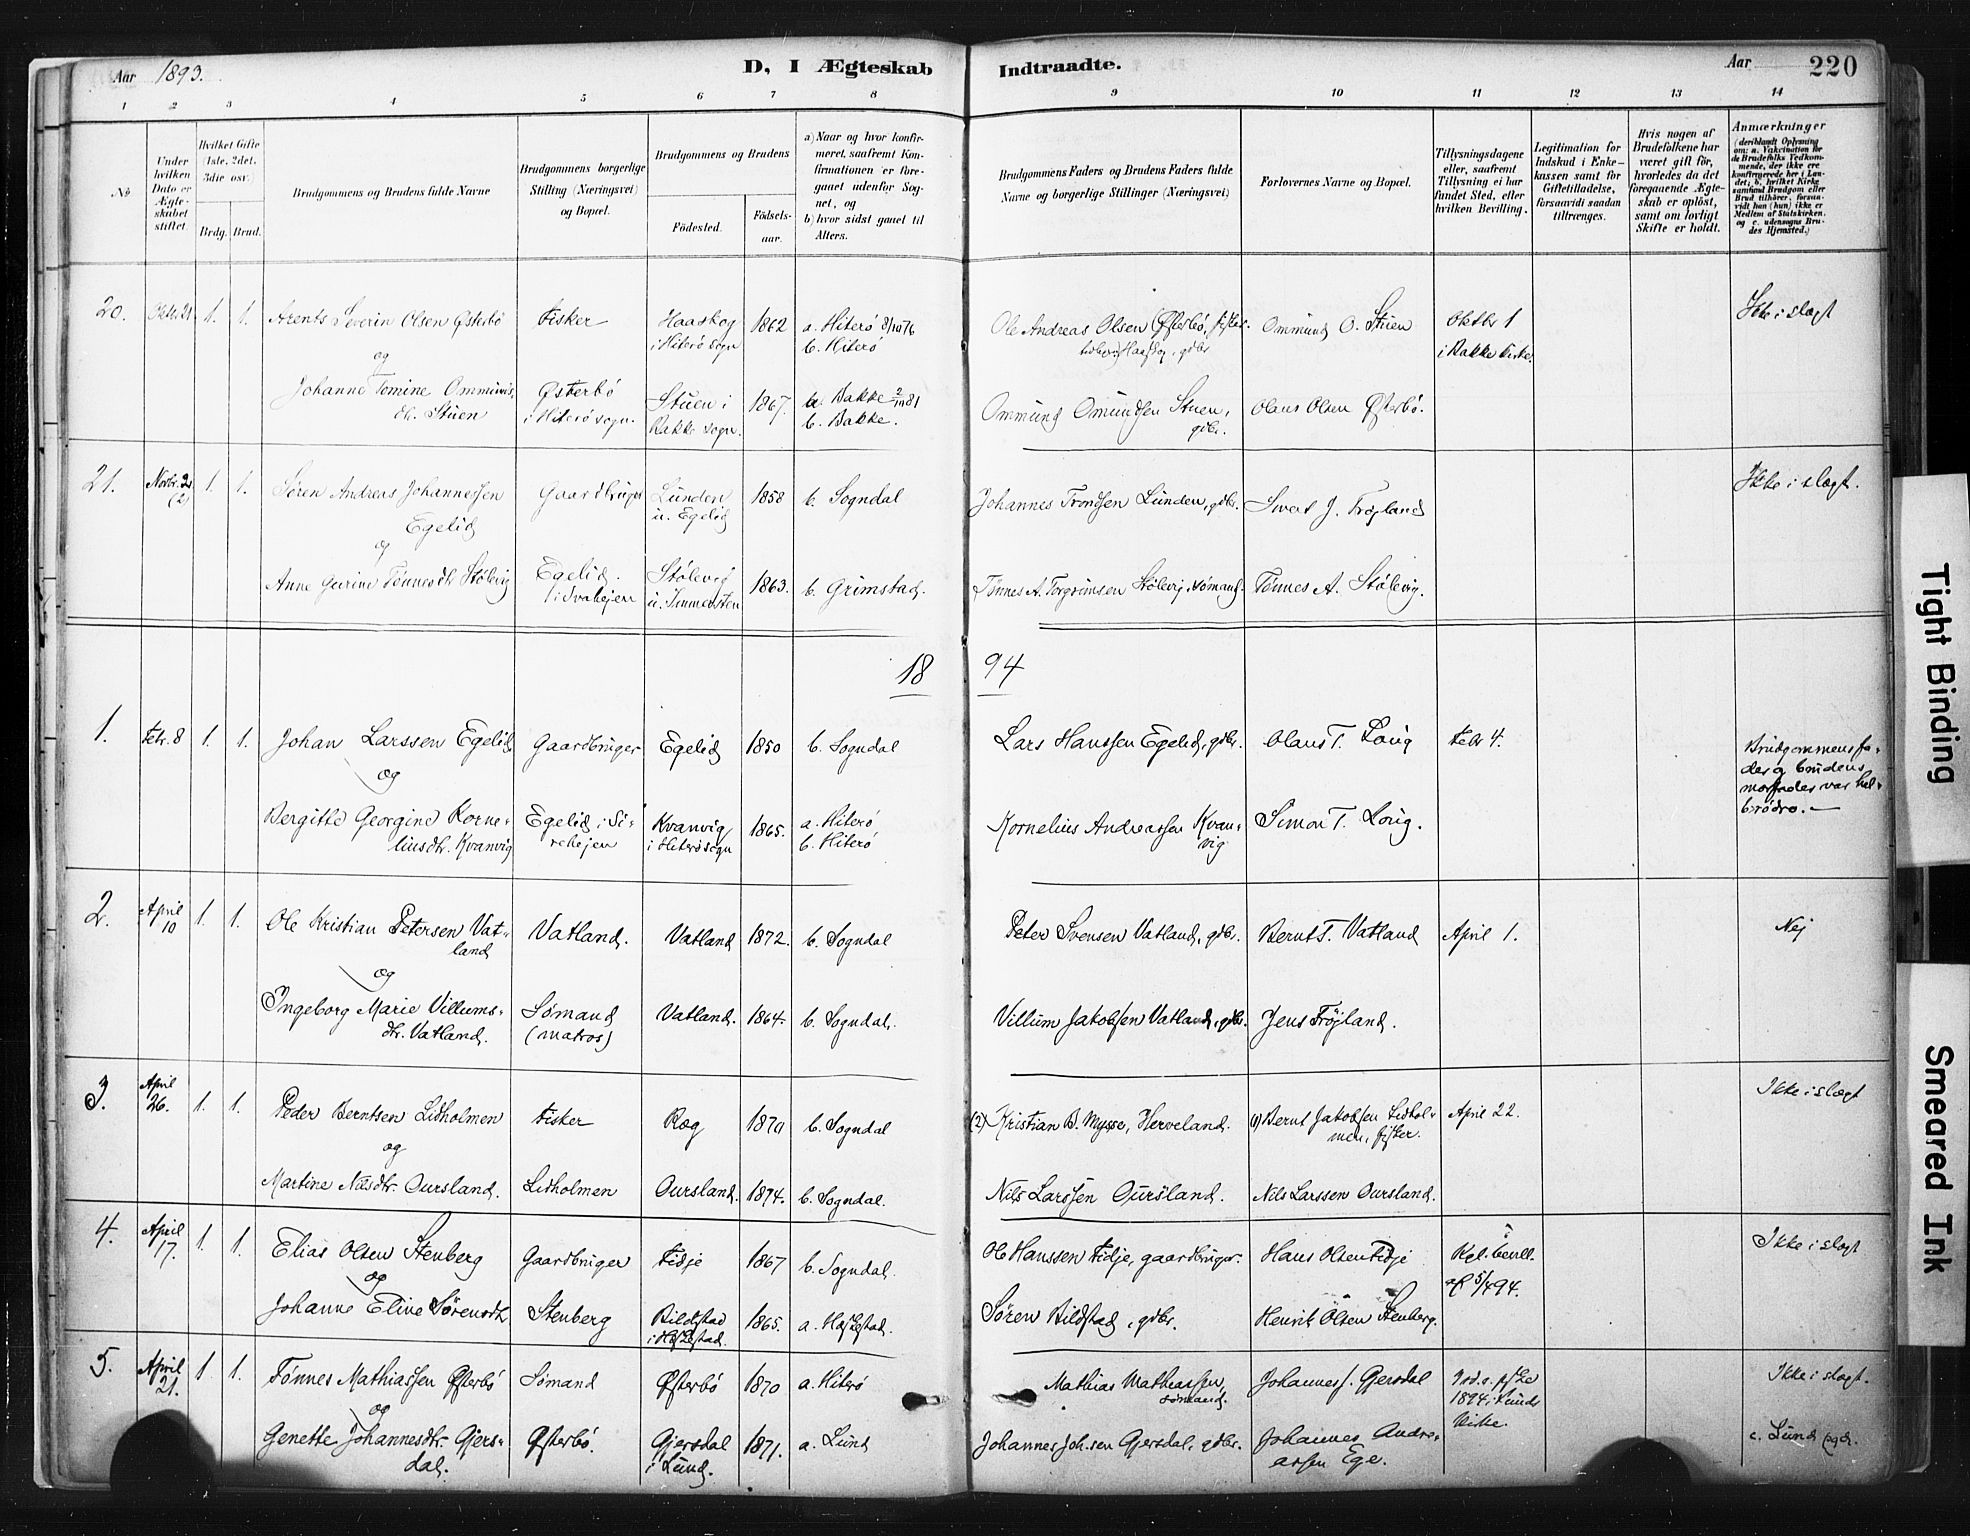 Aar 1893.
D, I Ægteskab Indtraadte.
Aar 220
1 2 3 4 5 6 7 8 9 10 11 12 13 14
No
Under hvilken Dato er Ægteskabet stiftet
Hvilket Gifte (1ste, 2det, 3die osv.)
Brdg. Brud.
Brudgommens og Brudens fulde Navne
Brudgommens borgerlige Stilling (Næringsvei) og Bopæl.
Brudgommens og Brudens
Fødested.
Fødselsaar.
a) Naar og hvor konfirmeret, saafremt Konfirmationen er foregaaet udenfor Sognet, og
b) hvor sidst gaaet til Alters.
Brudgommens Faders og Brudens Faders fulde Navne og borgerlige Stillinger (Næringsvei)
Forlovernes Navne og Bopæl.
Tillysningsdagene eller, saafremt Tillysning ei har fundet Sted, efter hvilken Bevilling.
Legitimation for Indskud i Enkekassen samt for Giftetilladelse, forsaavidt saadan tiltrænges.
Hvis nogen af Brudefolkene har været gift før, hvorledes da det foregaaende Ægteskab er opløst, samt om lovligt Skifte er holdt.
Anmærkninger
(deriblandt Oplysning om: a. Vakcination for de Brudefolks Vedkommende, der ikke ere konfirmerede her i Landet; b. hvilket Kirkesamfund Brudgom eller Brud tilhører, forsaavidt han (hun) ikke er Medlem af Statskirken. og c. udensogns Brudes Hjemsted.)
20. Oktbr. 21 1. 1. Arents Severin Olsen Østerbø fisker Haaskog i Hiterø sogn 1862 a. Hiterø 8/10 76 b. Hiterø Ole Andreas Olsen Østerbø, fisker Ommund O. Stuen Oktbr 1 i Bakke kirke. Ikke i slægt
og
Johanne Tomine Ommundsdtr. Stuen Østerbø i Hiterø sogn. Stuen i Bakke sogn. 1867. a. Bakke 2/10 81 b. Bakke. Ommund Omundsen Stuen, gdbr. Olaus Olsen Østerbø.
21. Novbr. 2 (2) 1. 1. Søren Andreas Johannessen Egelid Gaardbruger Lunden u. Egelid 1858 b. Sogndal Johannes Trondsen Lunden, gdbr. Sivert J. Frøyland Ikke i slægt.
og
Anne Gurine Tønnesdtr Stølevig Egelid Stølevig 1863. b. Grimstad. Tønnes A. Torgrimsen Stølevig sømand. Tønnes A. Stølevig.
18 94
1. Febr. 8 1. 1. Johan Larssen Egelid Gaardbruger Egelid 1850 b. Sogndal Lars Hanssen Egelid, gdbr. Olaus T. Loug Febr 4. Brudgommens fader og brudens morfader var halbrødre.
og
Bergitte Georgine Korneliusdtr. Kvanvig Egelid i Sirehejen Kvanvig i Hiterø sogn 1865. a. Hiterø b. Hiterø Kornelius Andreassen Kvanvig Simon T. Loug.
2. April 10 1. 1. Ole Kristian Petersen Vatland Vatland. Vatland 1872. b. Sogndal Peter Svensen Vatland, gdbr. Bernt T. Vatland April 1. Nej
og
Ingeborg Marie Villumsdtr. Vatland. Sømand (matros) Vatland. 1864. b. Sogndal. Villum Jakobsen Vatland, gdbr. Jens Frøjland.
3. April 26. 1. 1. Peder Berntsen Lidholmen fisker Ræg 1870 b. Sogndal (2) Kristian B. Mysse, Herveland. (1) Bernt Jakobsen Lidholmen, fisker. April 22. Ikke i slægt
og
Martine Nilsdtr. Oursland. Lidholmen Oursland. 1874. b. Sogndal. Nils Larssen Oursland. Nils Larssen Oursland.
4. April 17. 1. 1. Elias Olsen Stenberg Gaardbruger Fidje 1867 b. Sogndal. Ole Hanssen Fidje, gaardbruger. Hans Olsen Fidje Kgl. bevill. af 5/4 94. Ikke i slægt
og
Johanne Eline Sørensdtr Stenberg Bildstad i Heskestad. 1865. a. Heskestad. Søren Bildstad, gdbr. Henrik Olsen Stenberg.
5. April 21. 1. 1. Tønnes Mathiassen Østerbø Sømand Østerbø 1870 a. Hiterø Mathias Mathiassen, sømand. Johannes J. Gjersdal 3 sd. e. paaske 1894 i Lunds kirke. Ikke i slægt.
og
Genette Johannesdtr. Gjersdal. Østerbø. Gjersdal i Lund. 1871. a. Lund Johannes Joh.sen Gjersdal, gdbr. Johannes Andreassen Ege. c. Lund
Tight Binding
Smeared Ink